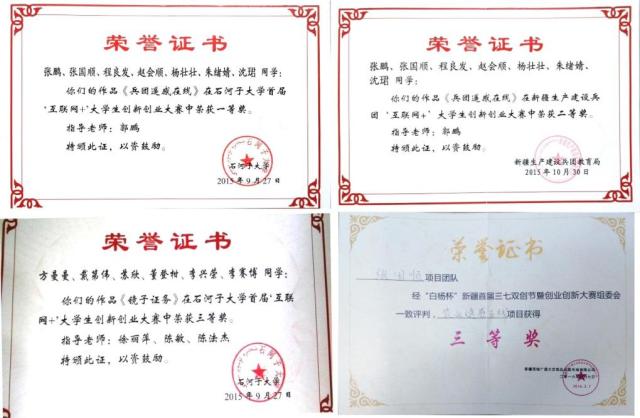 荣誉证书
张鹏、张国顺、程良发、赵会顺、杨壮壮、朱绪婧、沈珺 同学：
你们的作品《兵团遥感在线》在石河子大学首届
“互联网+”大学生创新创业大赛中荣获一等奖。
指导老师：郭鹏
特颁此证，以资鼓励。
石河子大学
2015年9月27日
荣誉证书
张鹏、张国顺、程良发、赵会顺、杨壮壮、朱绪婧、
沈珺 同学：
你们的作品《兵团遥感在线》在新疆生产建设兵
团“互联网+”大学生创新创业大赛中荣获二等奖。
指导老师：郭鹏
特颁此证，以资鼓励。
新疆生产建设兵团教育局
2015年10月30日
荣誉证书
方曼曼、戴第伟、苏欣、董登柑、李兴荣、李赛博 同学：
你们的作品《镜子证务》在石河子大学首届“互联
网+”大学生创新创业大赛中荣获三等奖。
指导老师：徐丽萍、陈敏、陈法杰
特颁此证，以资鼓励。
石河子大学
2015年9月27日
荣誉证书
张国顺项目团队
经“白杨杯”新疆首届三七双创节暨创业创新大赛组委会
一致评判，项目获得
三等奖
2016.3.7